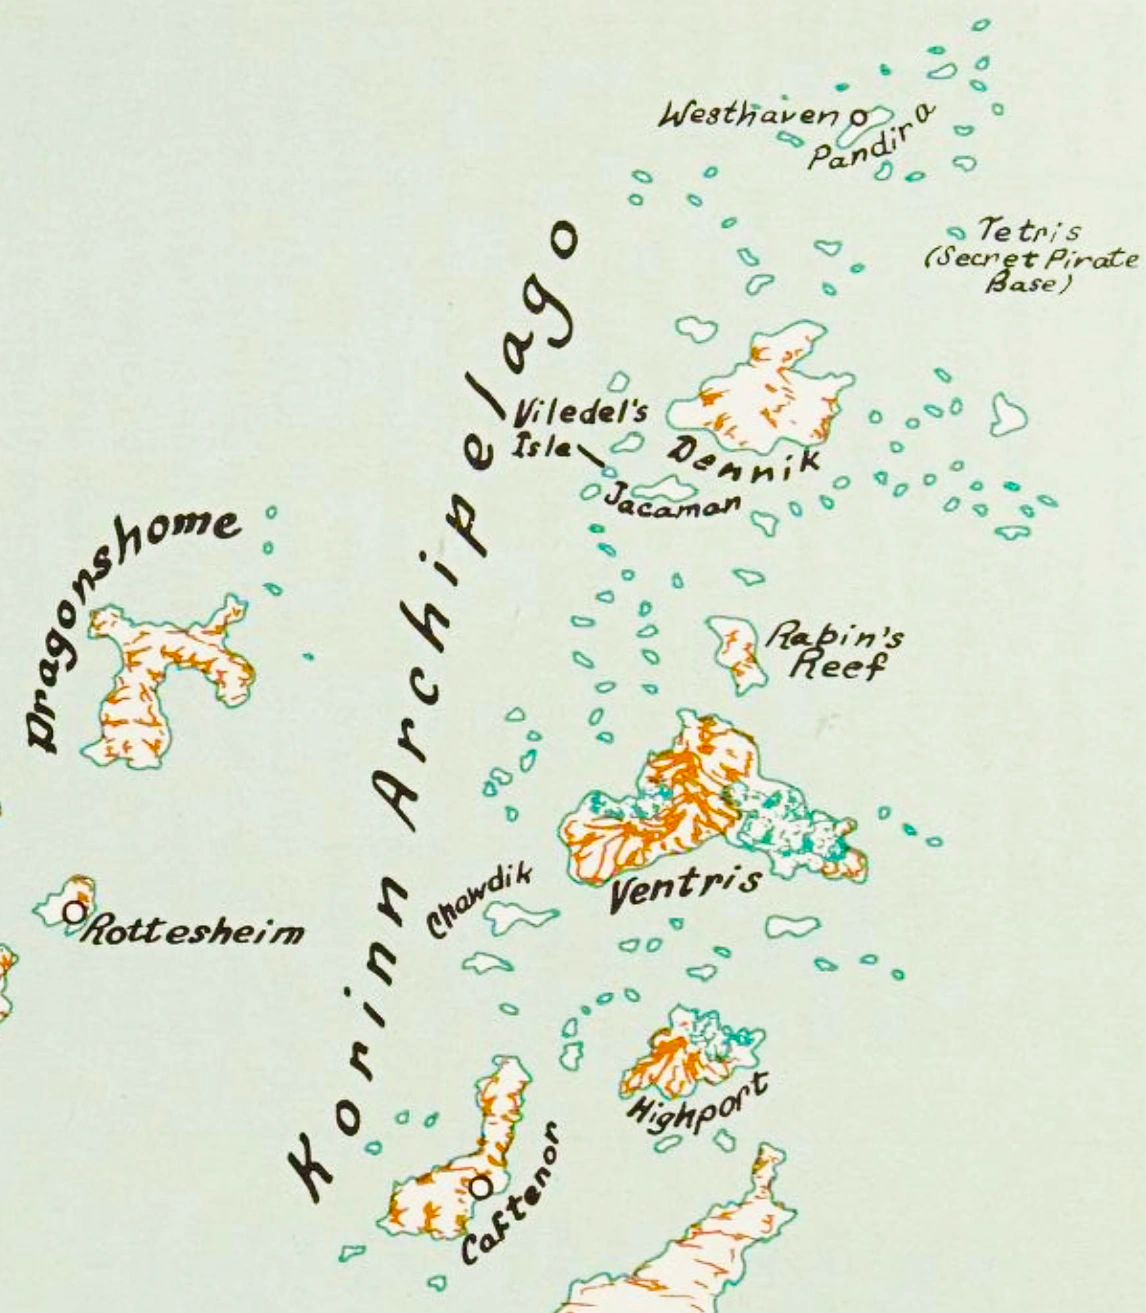 Westhaven
Pandira
Tetris
(Secret Pirate
Base)
Korinn Archipelago
Viledel's
Isle
Dennik
Jacaman
Dragonshome
Rabin's
Reef
Ventris
Chawdik
Rottesheim
Highport
Caftenor